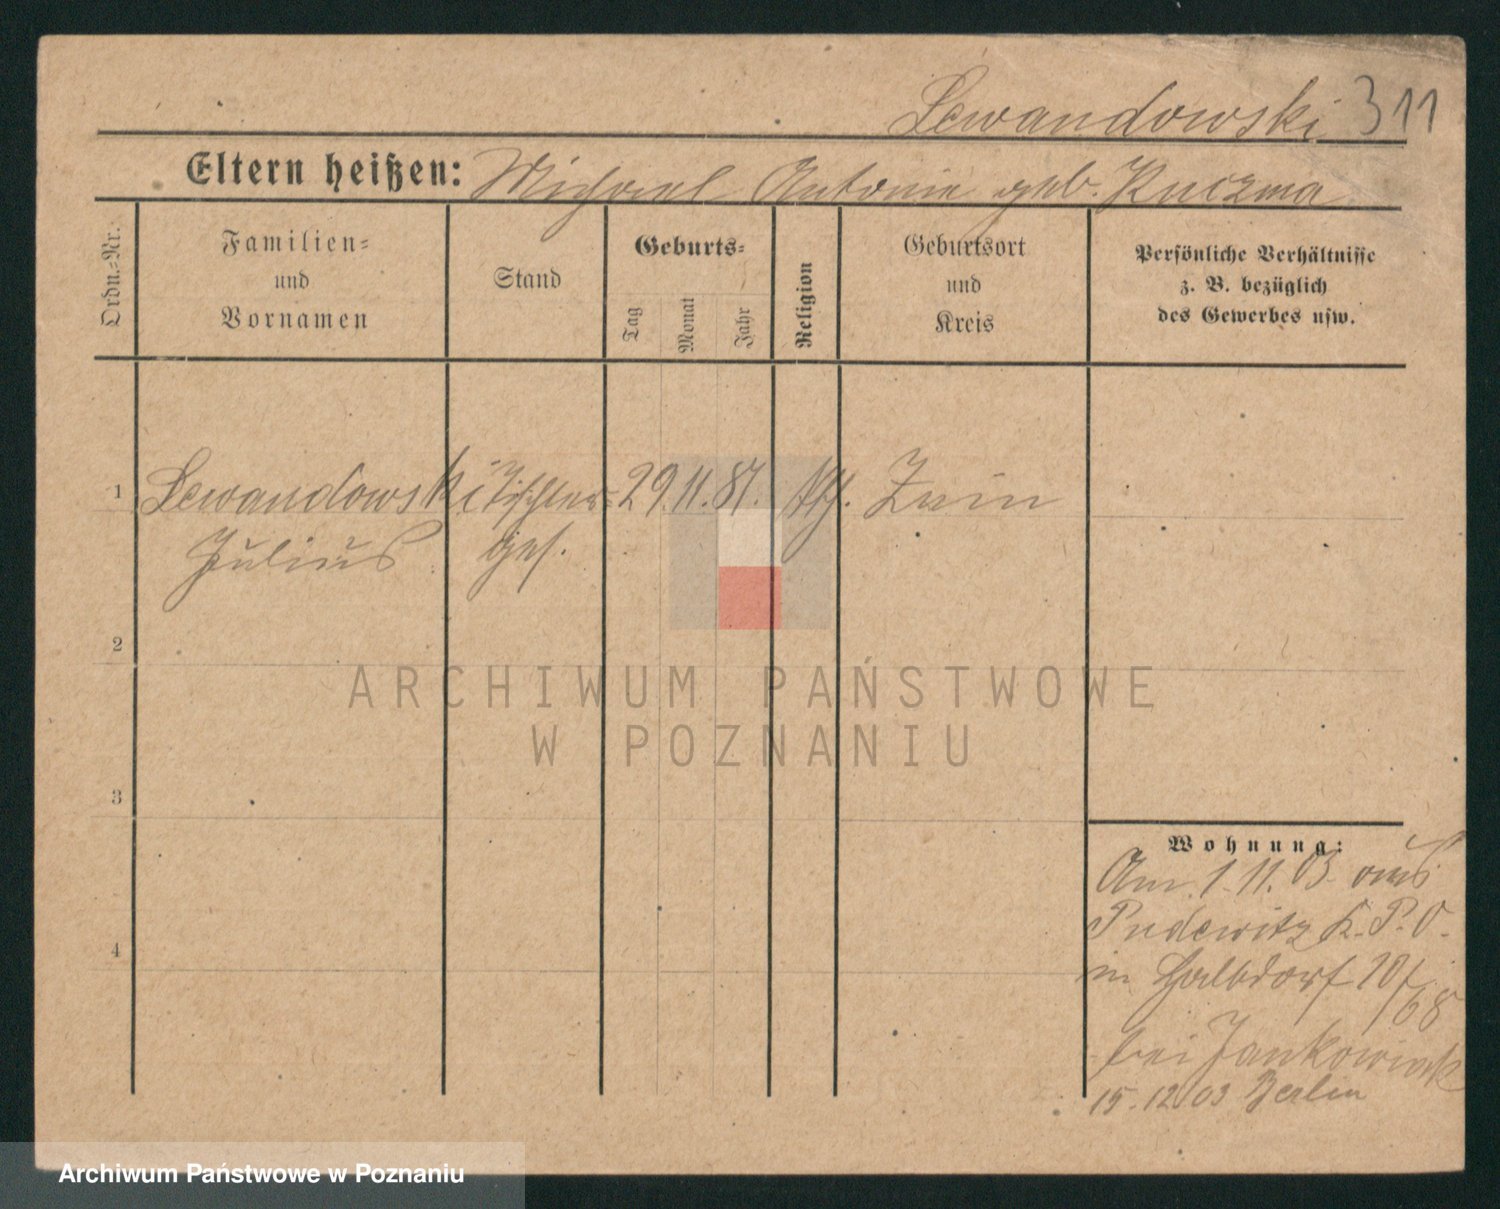 Lewandowski 311
Eltern heißen: Michael Antonie geb. Kuczma
Ordn.-Nr.
Familien-
und
Vornamen
Stand
Geburts-
Tag
Monat
Jahr
Religion
Geburtsort
und
Kreis
Persönliche Verhältnisse
z. B. bezüglich
des Gewerbes usw.
1 Lewandowski Tischler- 29. 11. 87. kth. Znin
Julius ges.
2
3
4
Wohnung:
Am 1. 11. 03 aus
Pudewitz K. P. O.
in Halbdorf 10/
68
bei Jankowiak
15. 12. 03 Berlin
ARCHIWUM PAŃSTWOWE
W POZNANIU
Archiwum Państwowe w Poznaniu